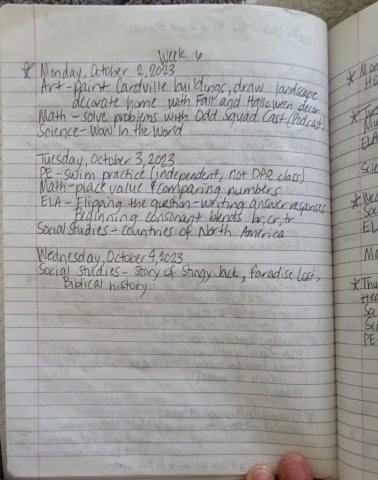 Week 6
* Monday, October 2, 2023
Art - paint Cardville buildings, draw landscape
decorate home with Fall and Halloween decor
Math - solve problems with Odd Squad Cast (Podcast)
Science - Wow In the World
Tuesday, October 3, 2023
PE - swim practice (independent, not DPR class)
Math - place value & comparing numbers
ELA - Flipping the question - writing answer responses
Beginning consonant blends br, cr, tr
Social Studies - countries of North America
Wednesday, October 4, 2023
Social Studies - Story of Stingy Jack, Paradise Lost,
Biblical history
* Mon
*
ELA
Scie
EL
Ma
* Thu
Hea
So
Sc
PE